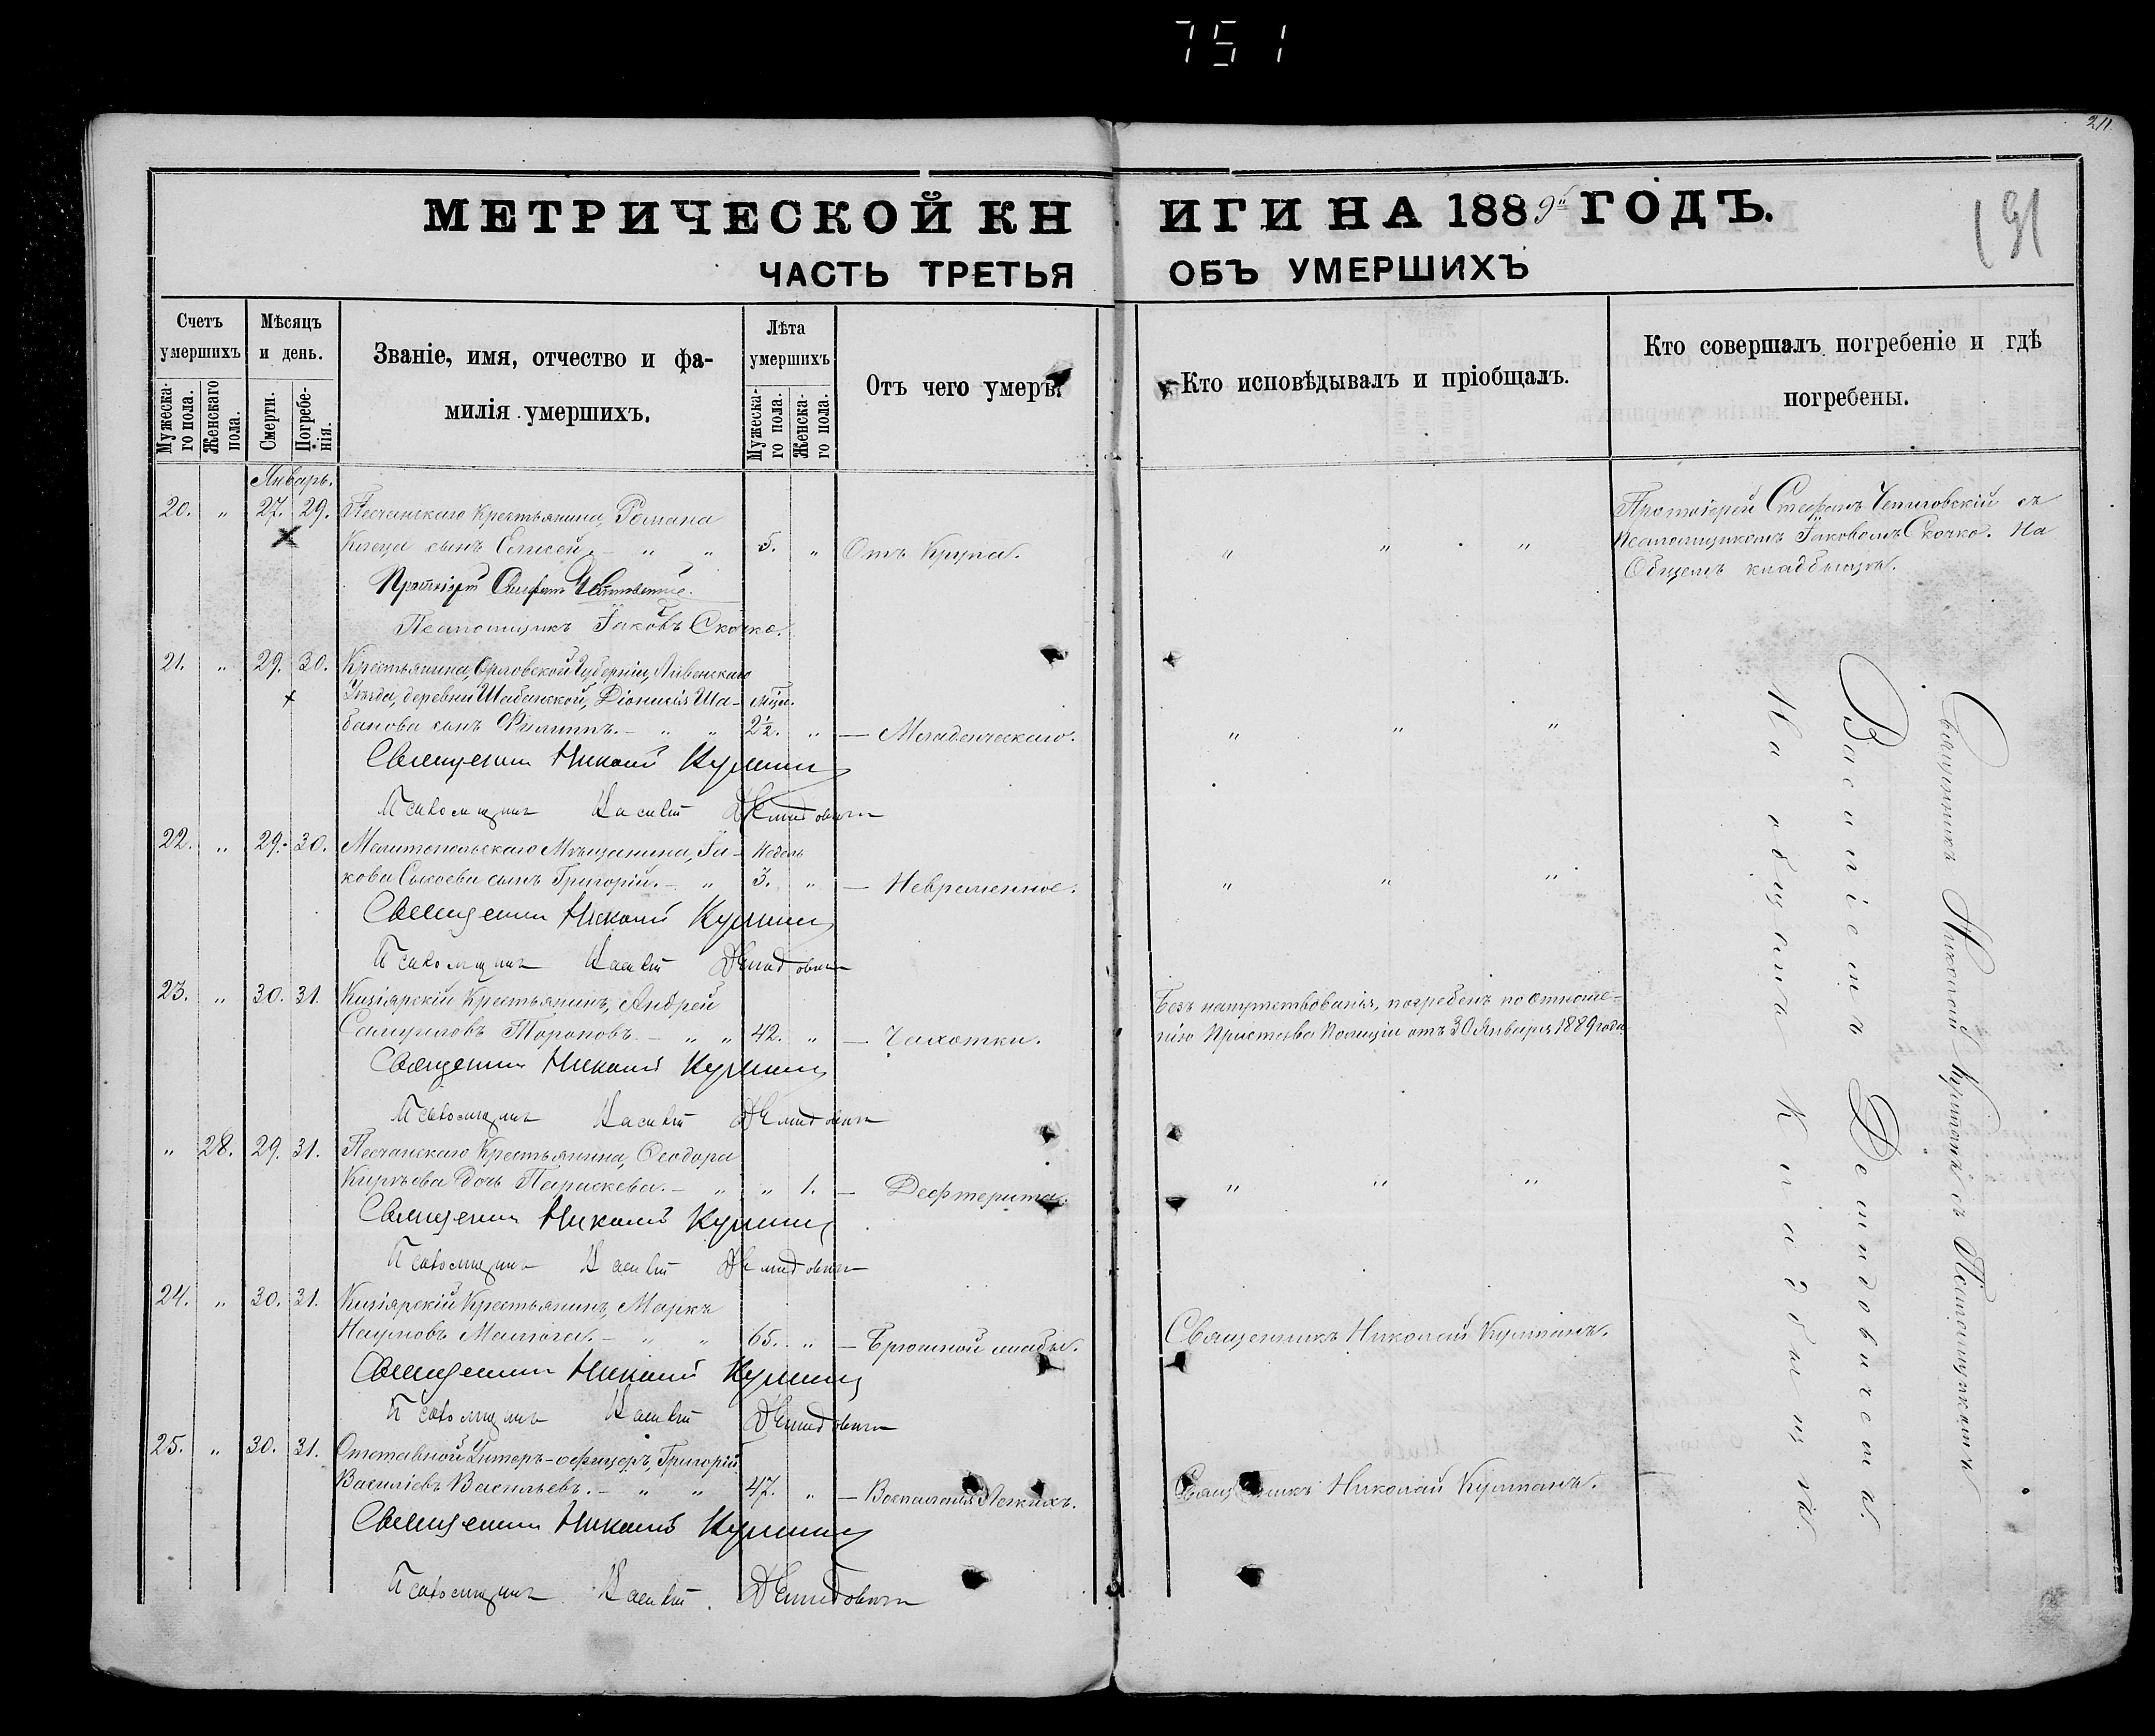 751
211
191
МЕТРИЧЕСКОЙ КНИГИ НА 1889й ГОДЪ.
ЧАСТЬ ТРЕТЬЯ ОБЪ УМЕРШИХЪ
Счетъ умершихъ
Мужеска-го пола.
Женскаго пола.
Мѣсяцъ и день.
Смерти.
Погребе-нія.
Званіе, имя, отчество и фа-
милія умершихъ.
Лѣта умершихъ
Мужеска-го пола.
Женска-го пола.
Отъ чего умеръ.
Кто исповѣдывалъ и пріобщалъ.
Кто совершалъ погребеніе и гдѣ
погребены.
Январь.
20. " 27. 29. Песчанскаго Крестьянина, Романа
сынъ Елисей. - " " 5. " Отъ Крупа. " " "
Протоіерей Стефанъ
Псаломщикъ Іаковъ Скочко.
Протоіерей Стефанъ съ
Псаломщикомъ Іаковомъ Скочко. На
Общемъ кладбищѣ.
21. " 29. 30. Крестьянина, Орловской Губерніи, Ливенскаго
Уѣзда, деревни Шабанской, Діонисія Ша- мѣся.
банова сынъ Филиппъ. - " " 2½. " — Младенческаго. " " "
Священникъ Николай Култанъ
Псаломщикъ Василій Демидовичъ
22. " 29. 30. Мелитопольскаго Мѣщанина, Іа- Недель
кова Сысоева сынъ Григорій. - " 3. " — Невременное. " " "
Священникъ Николай Култанъ
Псаломщикъ Василій Демидовичъ
23. " 30. 31. Кизіярскій Крестьянинъ, Андрей
Самуиловъ Тороповъ. - " " 42. " — Чахотки.
Безъ напутствованія, погребенъ по отноше-
нію Пристава Полиціи отъ 30 Января 1889 года
Священникъ Николай Култанъ
Псаломщикъ Василій Демидовичъ
" 28. 29. 31. Песчанскаго Крестьянина, Ѳеодора
Киріева дочь Параскева. - " " 1. — Дефтерита. " " "
Священникъ Николай Култанъ
Псаломщикъ Василій Демидовичъ
24. " 30. 31. Кизіярскій Крестьянинъ, Маркъ
Наумовъ - " " 65. " — Брюшной Священникъ Николай Култанъ.
Священникъ Николай Култанъ
Псаломщикъ Василій Демидовичъ
25. " 30. 31. Отставной Унтеръ-офицеръ, Григорій
Василіевъ Васильевъ. - " " 47. " — Воспаленія Легкихъ. Священникъ Николай Култанъ.
Священникъ Николай Култанъ
Псаломщикъ Василій Демидовичъ
Священникъ Николай Култанъ съ Псаломщикомъ
Василіемъ Демидовичемъ.
На общемъ Кладбищѣ.